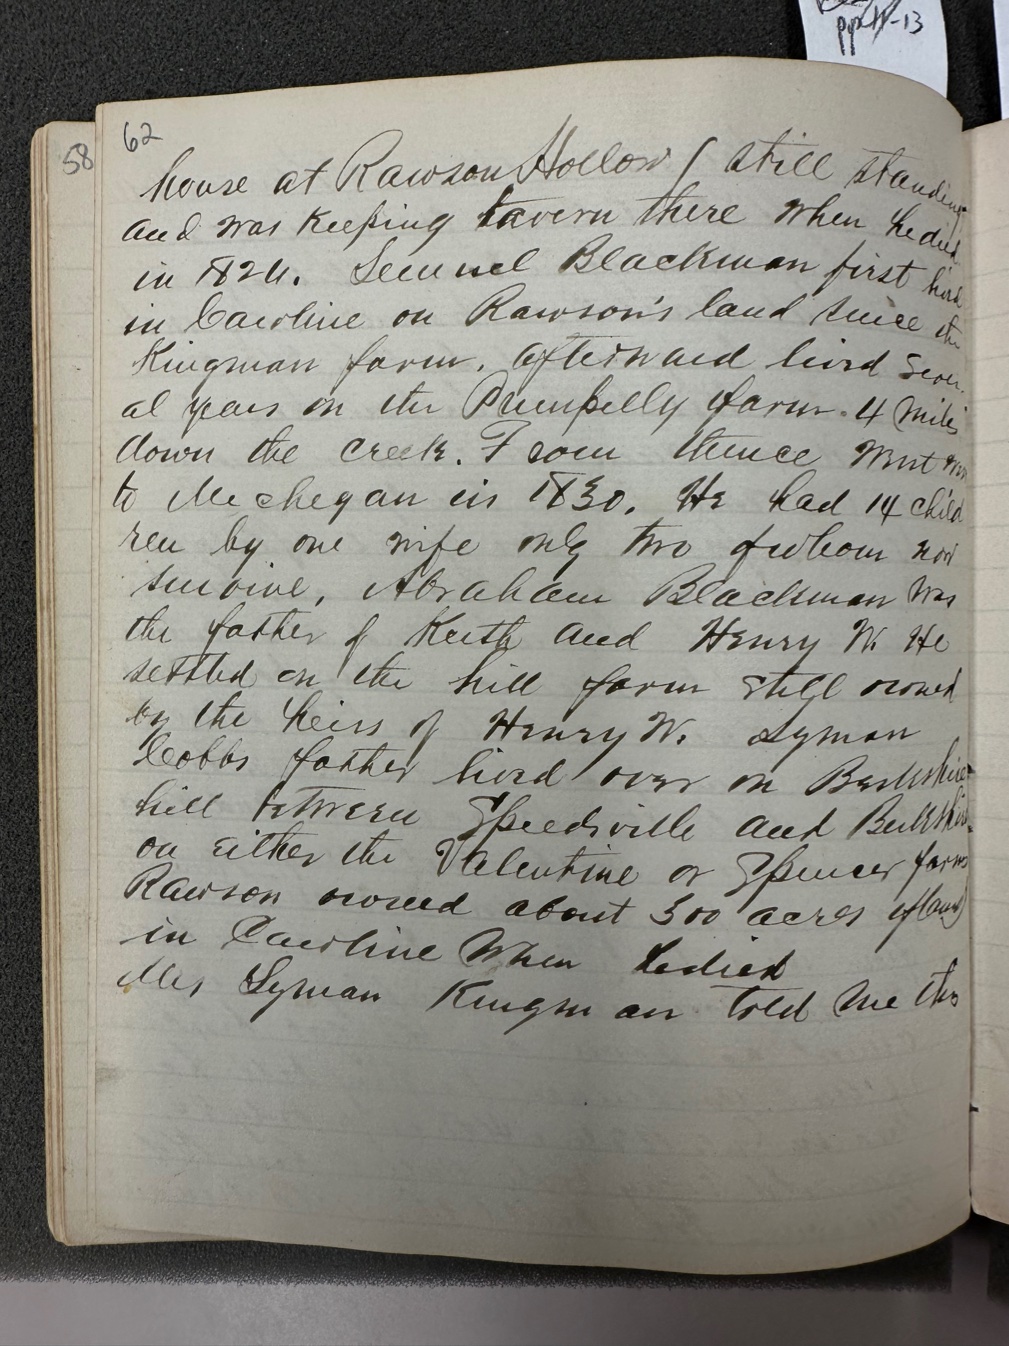 pp 11-13
58
62
house at Rawson Hollow ( still standing
and was keeping tavern there when he died
in 1824. Lemuel Blackman first lived
in Caroline on Rawson's land since the
Kingman farm. afterward lived Sever
al years on the Pumpelly farm. 4 miles
down the creek. From thence went
to Mechegan in 1830. He had 14 child
ren by one wife only two of whom now
survive. Abraham Blackman was
the father of Keith and Henry W. He
settled on the hill farm still owned
by the heirs of Henry W. Lyman
Cobbs father lived over on Berkshire
hill between Speedsville and Berkshire
on either the Valentine or Spencer farms
Rawson owned about 300 acres of land
in Caroline When he died
Mrs Lyman Kingman told me this